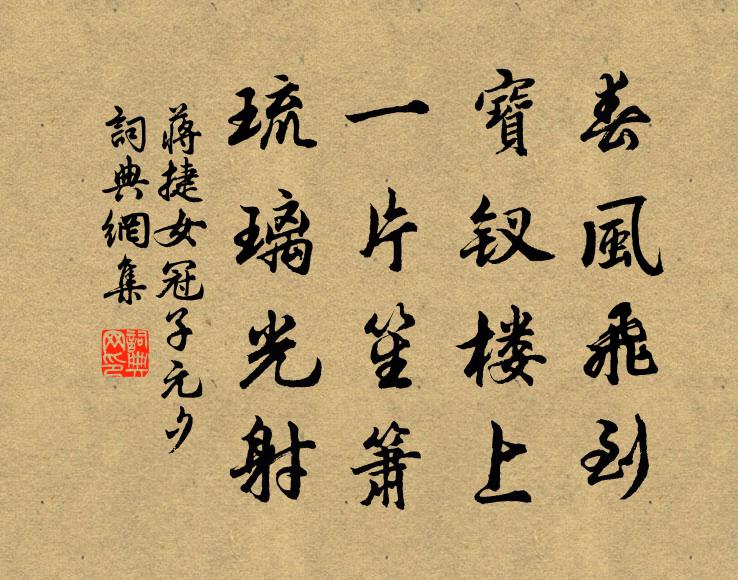 春風飛到
寶釵楼上
一片笙簫
琉璃光射
蔣捷女冠子元夕
詞典網集
詞典网印